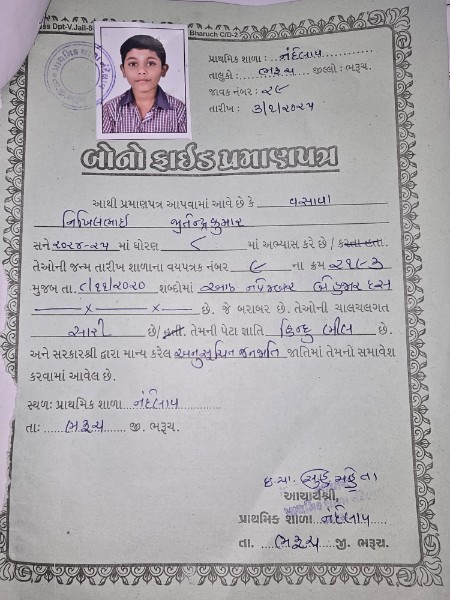 પ્રાથમિક શાળા : નંદેલાવ
તાલુકો : ભરૂચ જીલ્લો : ભરૂચ.
જાવક નંબર : ૨૯
તારીખ : ૩/૧/૨૦૨૫
બોનો ફાઈડ પ્રમાણપત્ર
આથી પ્રમાણપત્ર આપવામાં આવે છે કે વસાવા
નિખિલભાઈ જીતેન્દ્રકુમાર
સને ૨૦૨૪-૨૫ માં ધોરણ ૮ માં અભ્યાસ કરે છે / કરતા હતા.
તેઓની જન્મ તારીખ શાળાના વયપત્રક નંબર ૯ ના ક્રમ ૨૧૯૩
મુજબ તા. ૮/૧૧/૨૦૧૦ શબ્દોમાં આઠ નવેમ્બર બે હજાર દસ
x x છે. જે બરાબર છે. તેઓની ચાલચલગત
સારી છે/હતી. તેમની પેટા જ્ઞાતિ હિન્દુ ભીલ છે.
અને સરકારશ્રી દ્વારા માન્ય કરેલ અનુસૂચિત જનજાતિ જાતિમાં તેમનો સમાવેશ
કરવામાં આવેલ છે.
સ્થળ: પ્રાથમિક શાળા નંદેલાવ
તા: ભરૂચ જી. ભરૂચ.
આચાર્યશ્રી,
પ્રાથમિક શાળા નંદેલાવ
તા. ભરૂચ જી. ભરૂચ.